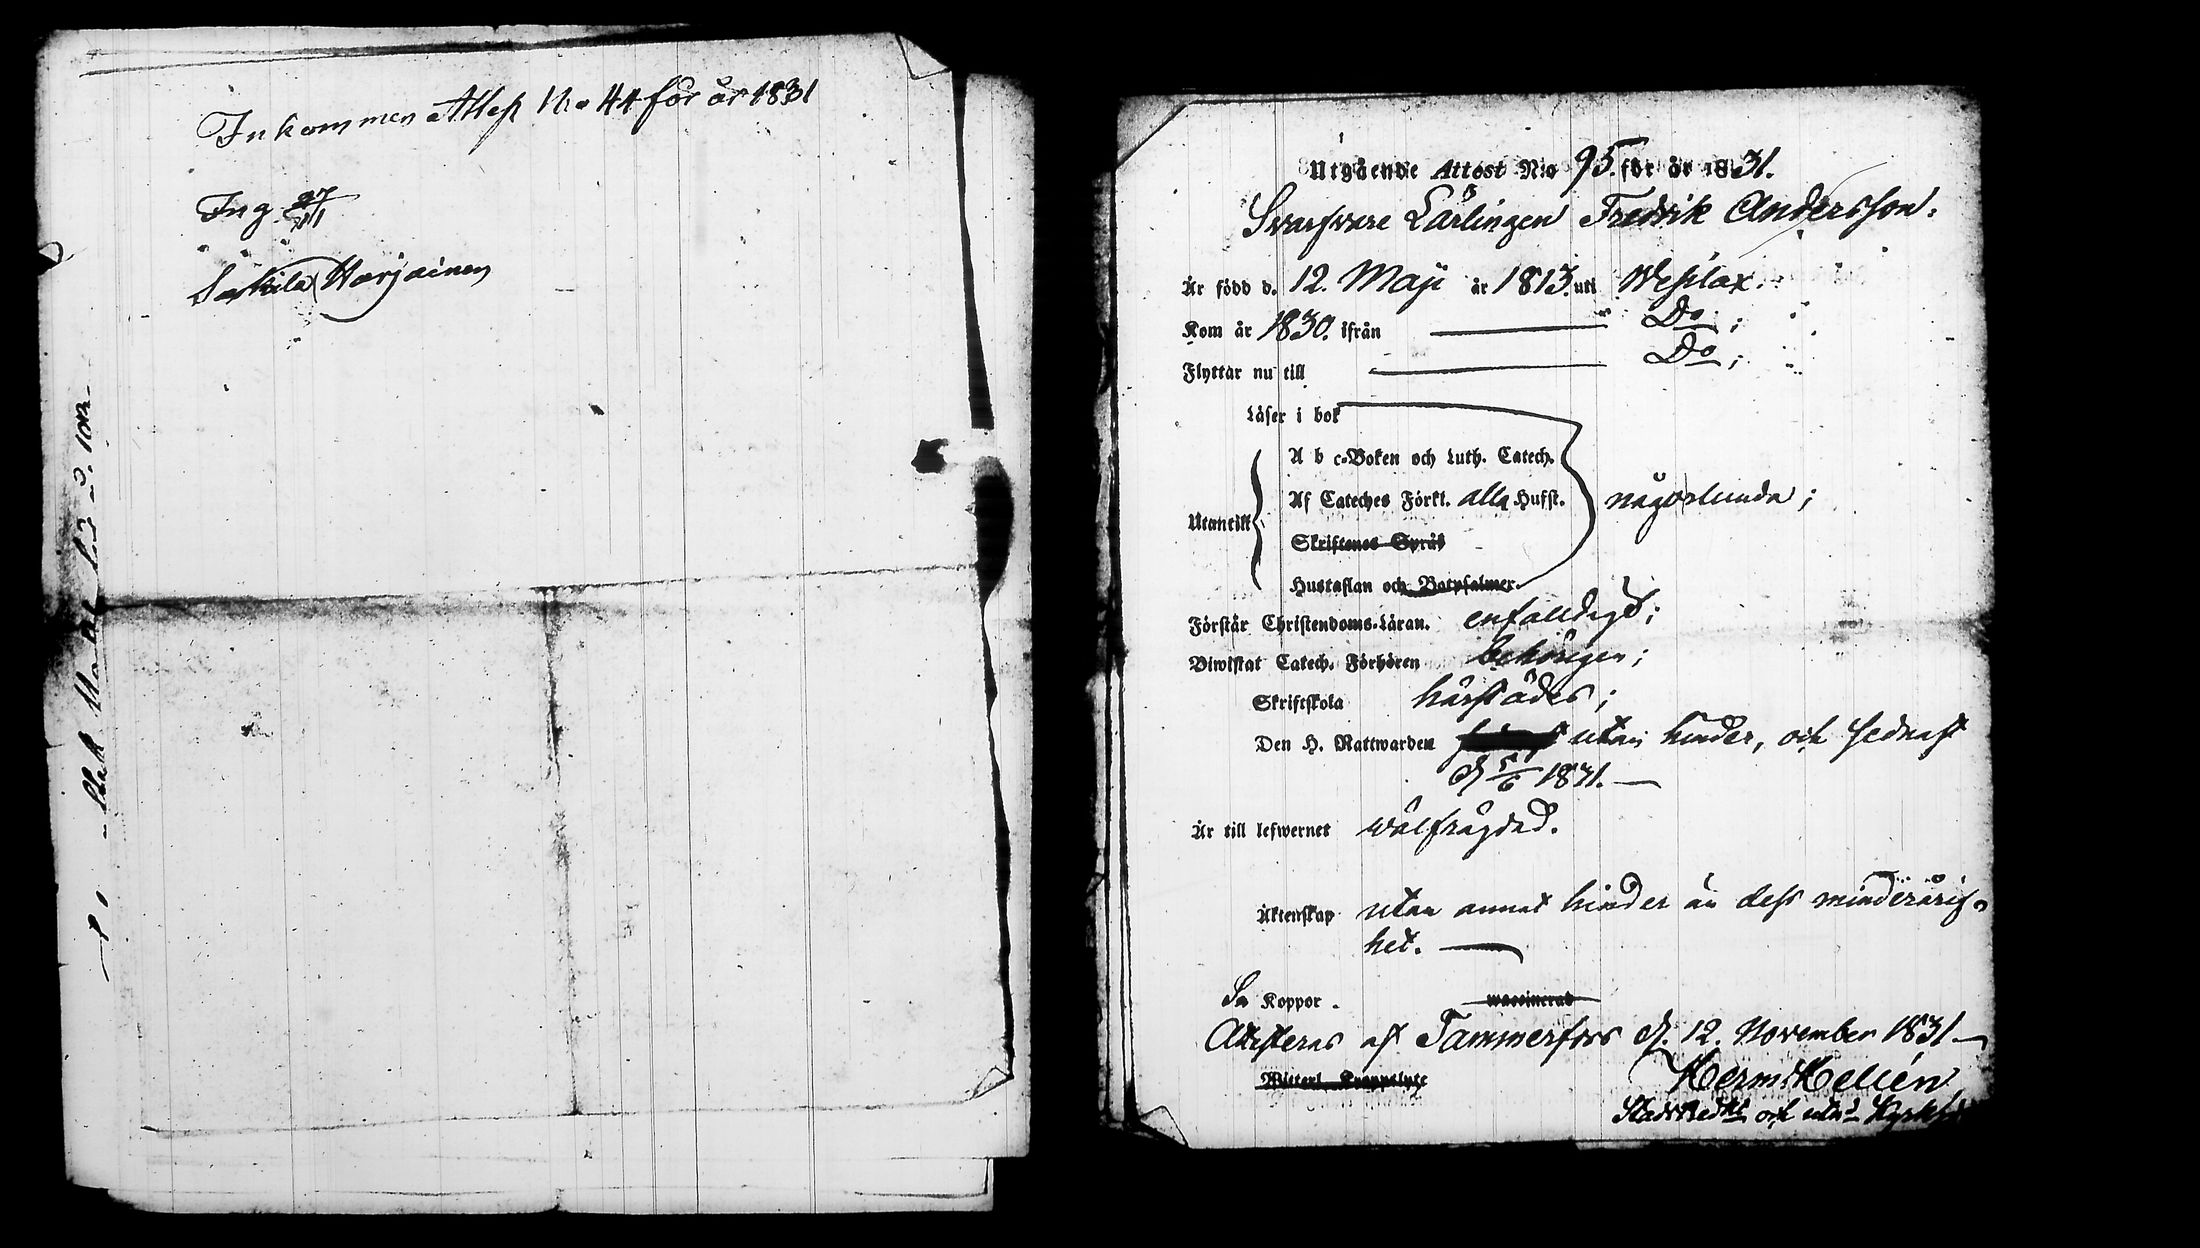 Inkommen Attest No 44 för år 1831
Ing 27/11
Sarkila Harjainen
Utgående Attest N:o 95. för år 1831.
Svarfvare Lärlingen Fredrik Andersson.
Är född d. 12. Maji år 1813. uti Wesilax.
Kom år 1830. ifrån Do;
Flyttar nu till Do;
Läser i bok
A b c-Boken och Luth. Catech.
Af Cateches Förkl. alla Hufst. någorlunda;
Utantill
Skriftenes Språk
Hustaflan och Botpsalmer
Förstår Christendoms-Läran. enfalldigt;
Biwistat Catech. Förhören behörigen;
Skriftskola härstädes;
Den H. Nattwarden utan hinder, och sednast
d. 5/6 1831.
Är till lefwernet wälfrägdad.
Äktenskap utan annat hinder än dess minderårig-
het.
Koppor. waccinerad
Attesteras af Tammerfors d. 12. November 1831
Herm: Hellén
och